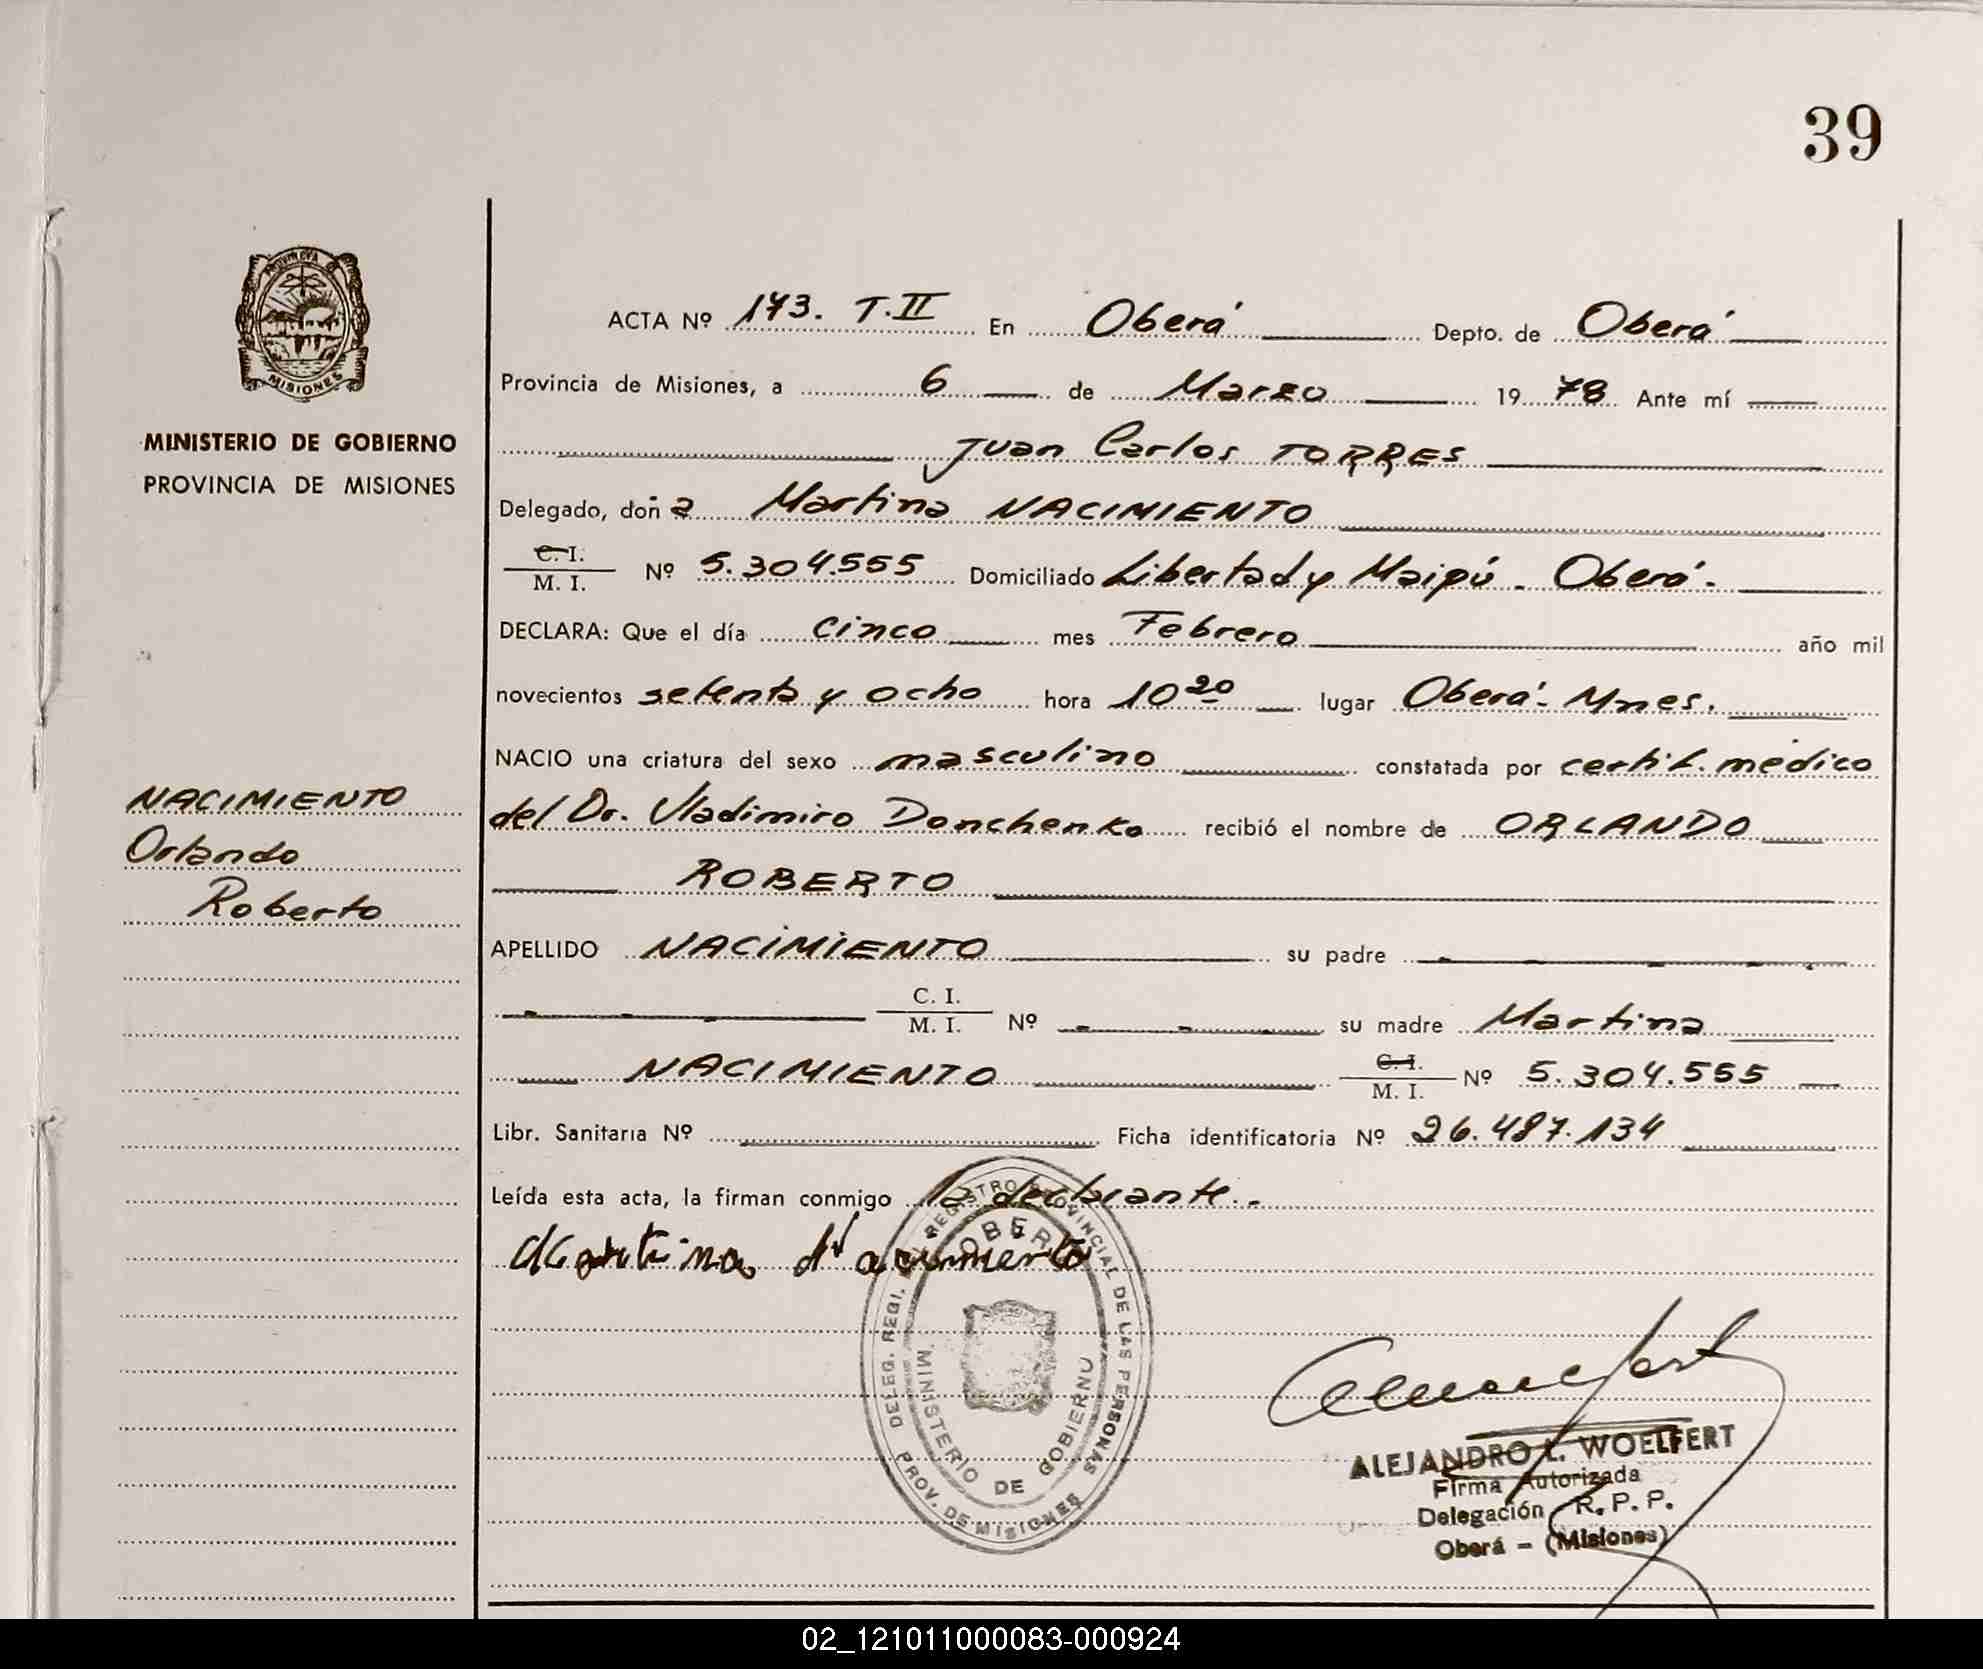 39
PROVINCIA DE
MISIONES
MINISTERIO DE GOBIERNO
PROVINCIA DE MISIONES
NACIMIENTO
Orlando
Roberto
ACTA Nº 173. T.II En Oberá Depto. de Oberá
Provincia de Misiones, a 6 de Marzo 1978 Ante mí
Juan Carlos TORRES
Delegado, doña Martina NACIMIENTO
C. I.
M. I. Nº 5.304.555 Domiciliado Libertad y Maipú - Oberá.
DECLARA: Que el día cinco mes Febrero año mil
novecientos setenta y ocho hora 10 20 lugar Oberá - Mnes.
NACIO una criatura del sexo masculino constatada por certif. médico
del Dr. Vladimiro Donchenko recibió el nombre de ORLANDO
ROBERTO
APELLIDO NACIMIENTO su padre
C. I.
M. I. Nº su madre Martina
NACIMIENTO C. I.
M. I. Nº 5.304.555
Libr. Sanitaria Nº Ficha identificatoria Nº 26.487.134
Leída esta acta, la firman conmigo la declarante.-
Martina Nacimiento
DELEG. REGI. REGISTRO PROVINCIAL DE LAS PERSONAS
OBERA
MINISTERIO DE GOBIERNO
PROV. DE MISIONES
ALEJANDRO L. WOELFERT
Firma Autorizada
Delegación R. P. P.
Oberá - (Misiones)
02_121011000083-000924